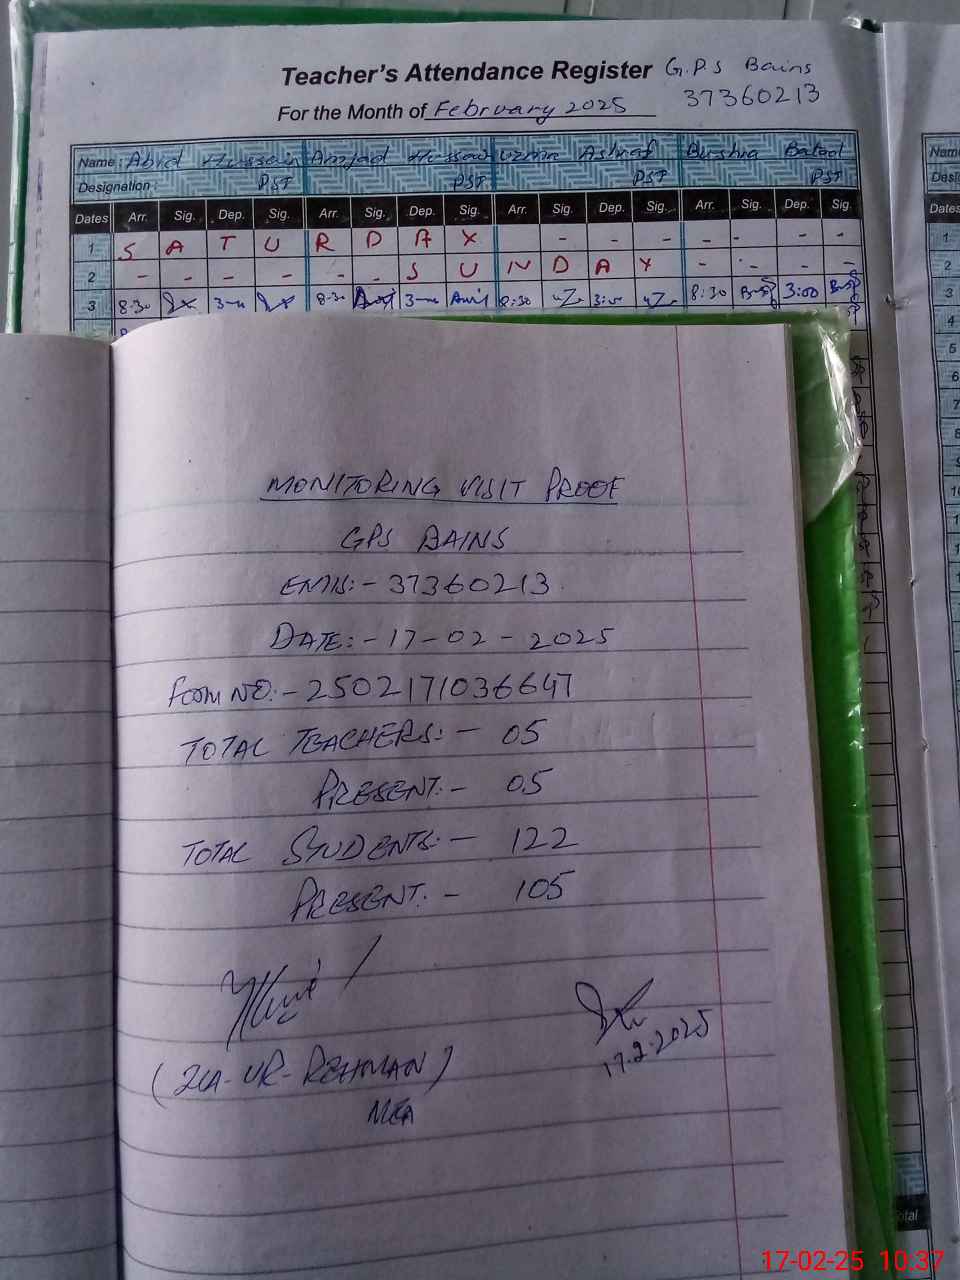 Teacher's Attendance Register G.P.S Bains
For the Month of February 2025 37360213
Name: Abid Hussain Amjad Hussain Uzma Ashraf Bushra Batool
Designation: PST PST PST PST
Dates Arr. Sig. Dep. Sig. Arr. Sig. Dep. Sig. Arr. Sig. Dep. Sig. Arr. Sig. Dep. Sig.
1 S A T U R D A Y - - - - - - -
2 - - - - - - S U N D A Y - - - -
3 8:30 3:00 8:30 3:00 8:30 3:00 8:30 3:00
4
MONITORING VISIT PROOF
GPS BAINS
EMIS:- 37360213
DATE:- 17-02-2025
Form NO:- 2502171036647
TOTAL TEACHERS:- 05
PRESENT:- 05
TOTAL STUDENTS:- 122
PRESENT:- 105
17.2.2025
(ZIA-UR-REHMAN)
MEA
Name
Desig
Dates
1
2
3
4
5
6
7
8
otal
17-02-25 10:37